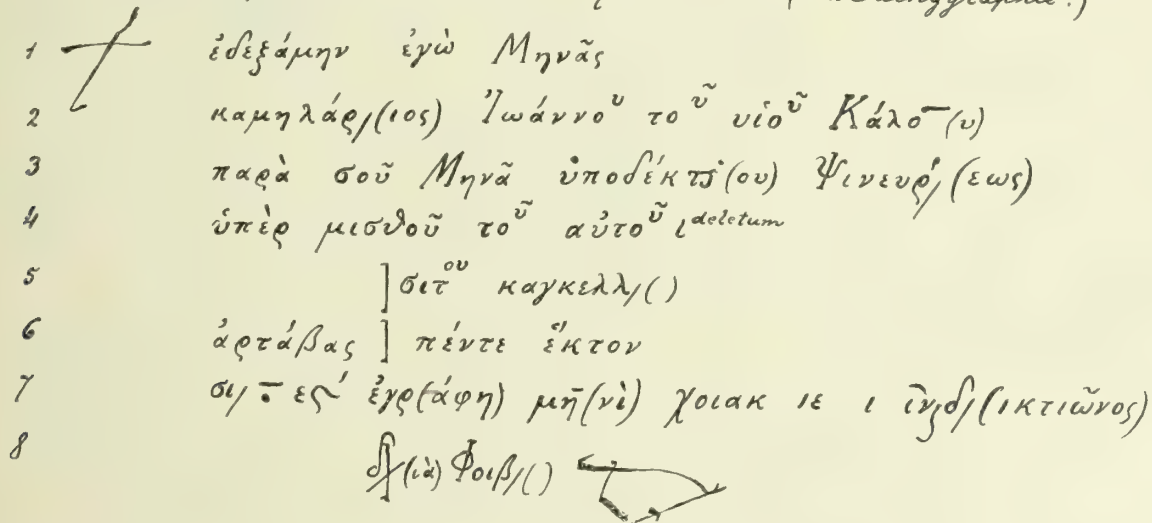 1 ἐδεξάμην ἐγὼ Μηνᾶς
2 καμηλάρ/(ιος) Ἰωάννου τοῦ υἱοῦ Κάλο̄(υ)
3 παρὰ σοῦ Μηνᾶ ὑποδέκτ(ου) Ψινευρ/(εως)
4 ὑπὲρ μισθοῦ τοῦ αὐτοῦ ι deletum
5 ]σιτου καγκελλ/( )
6 ἀρτάβας ] πέντε ἕκτον
7 σι/ ἐγρ(άφη) μη(νὶ) χοιακ ιε ι ἰνδ/(ικτιῶνος)
8 δ/(ιὰ) Φοιβ/( )